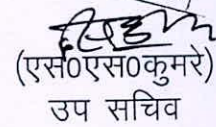 (एस0एस0कुमरे)
उप सचिव